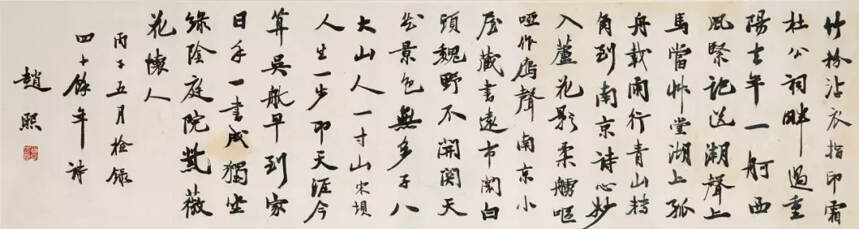 竹粉沾衣指印霜
杜公祠畔過重
陽去年一舸西
風緊記送潮聲上
馬當艸堂湖上孤
舟載雨行青山轉
角到南京詩心妙
入蘆花影柔艫嘔
啞作雁聲南京小
屋藏書遠市闤白
頭魏野不開關天
然景色無多子八
大山人一寸山宋塤
人生一步即天涯今
算吳航早到家
日手一書成獨坐
綠陰庭院紫薇
花懷人
丙子五月檢錄
四十餘年詩
趙熙